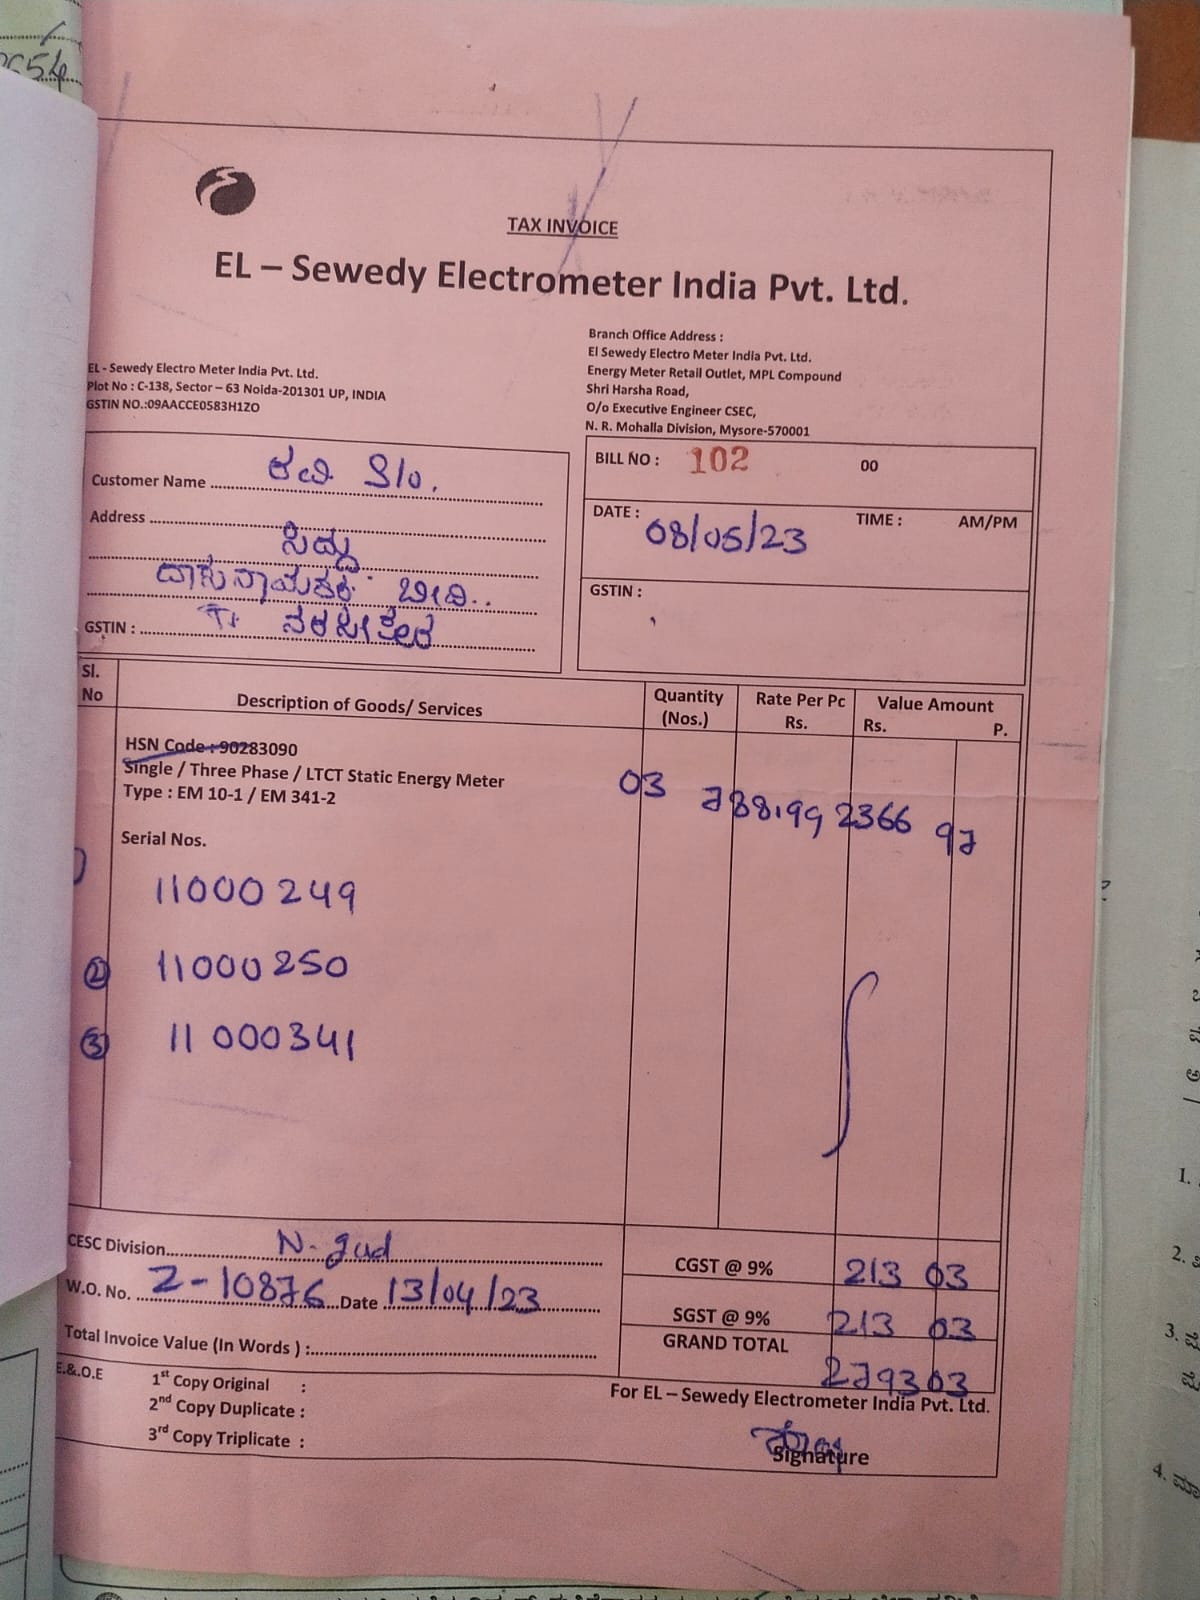 TAX INVOICE
EL – Sewedy Electrometer India Pvt. Ltd.
EL - Sewedy Electro Meter India Pvt. Ltd.
Plot No : C-138, Sector – 63 Noida-201301 UP, INDIA
GSTIN NO.:09AACCE0583H1ZO
Branch Office Address :
El Sewedy Electro Meter India Pvt. Ltd.
Energy Meter Retail Outlet, MPL Compound
Shri Harsha Road,
O/o Executive Engineer CSEC,
N. R. Mohalla Division, Mysore-570001
Customer Name ರವಿ S/o.
Address
ಸಿದ್ದು
ಬೀದಿ..
GSTIN :
BILL NO : 102 00
DATE : 08/05/23 TIME : AM/PM
GSTIN :
Sl. No Description of Goods/ Services Quantity (Nos.) Rate Per Pc Rs. Value Amount Rs. P.
HSN Code : 90283090
Single / Three Phase / LTCT Static Energy Meter
Type : EM 10-1 / EM 341-2
03 788.99 2366 97
Serial Nos.
11000249
② 11000250
③ 11000341
CESC Division N-gud
W.O. No. 2-10876 Date 13/04/23
Total Invoice Value (In Words ) :
CGST @ 9% 213 03
SGST @ 9% 213 03
GRAND TOTAL 2793 03
E.&.O.E
1st Copy Original :
2nd Copy Duplicate :
3rd Copy Triplicate :
For EL – Sewedy Electrometer India Pvt. Ltd.
Signature
1.
2.
3.
4.